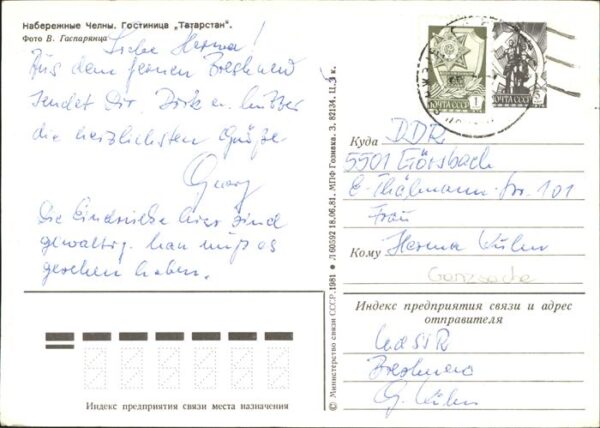 Набережные Челны. Гостиница „Татарстан".
Фото В. Гаспарянца
Liebe Herma!
Aus dem fernen Breshnew
sendet Dir, Dirk u. Mutter
die herzlichsten Grüße
Georg
Die Eindrücke hier sind
gewaltig. Man muß es
gesehen haben.
Индекс предприятия связи места назначения
© Министерство связи СССР. 1981 ● Л 60592 18.06.81. МПФ Гознака. З. 82134. Ц. 3 к.
ПОЧТА СССР
1
ПОЧТА СССР
Куда DDR
5501 Görsbach
E.-Thälmann-Str. 101
Frau
Кому Herma Kühn
Индекс предприятия связи и адрес
отправителя
UdSSR
Breshnew
G. Kühn